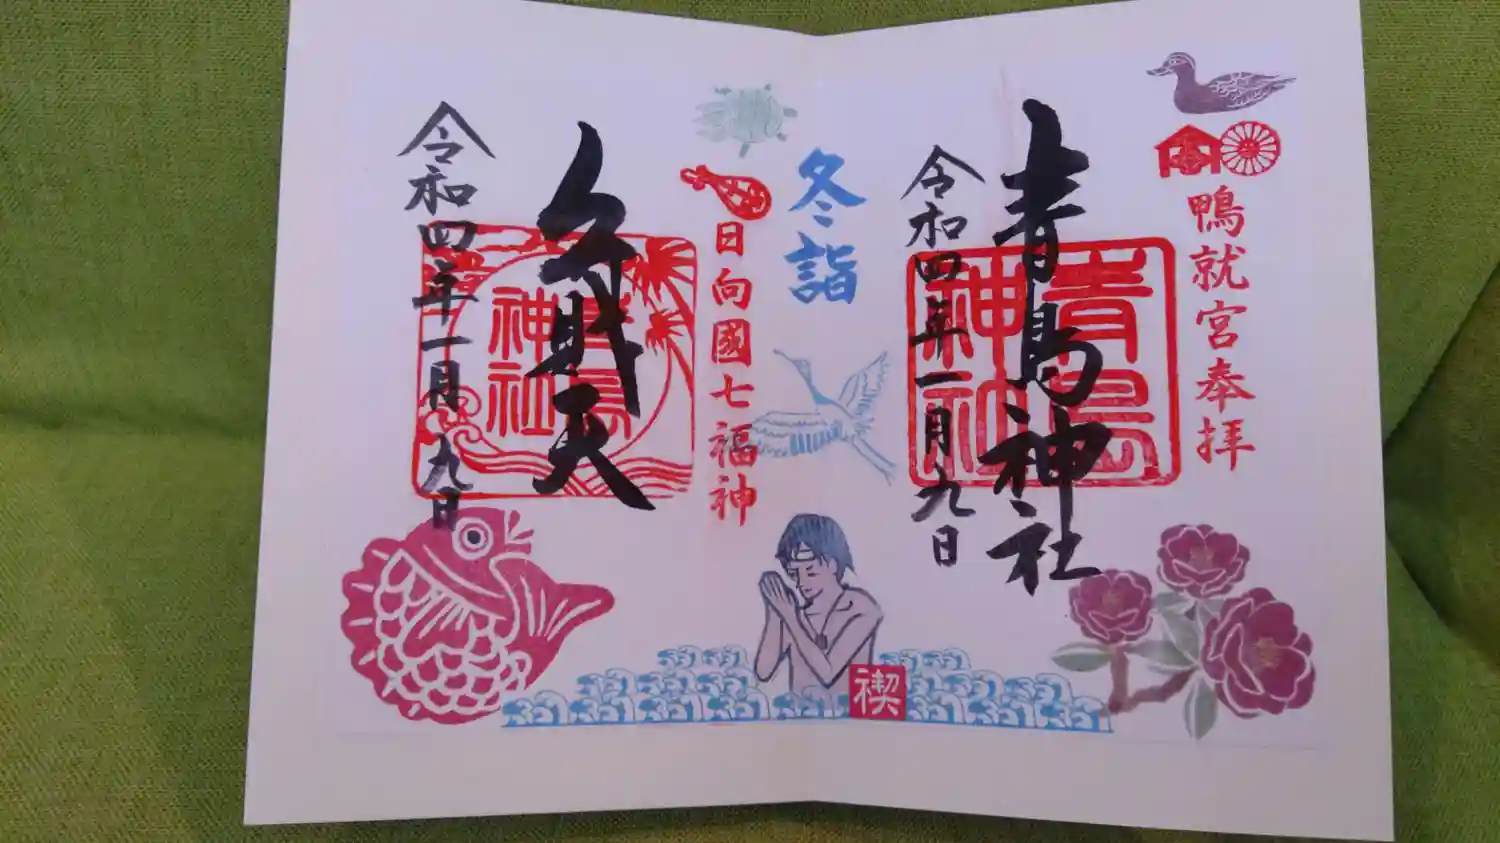 鴨就宮奉拝
青島神社
青島神社
令和四年一月九日
冬詣
日向國七福神
弁財天
青島神社
令和四年一月九日
禊